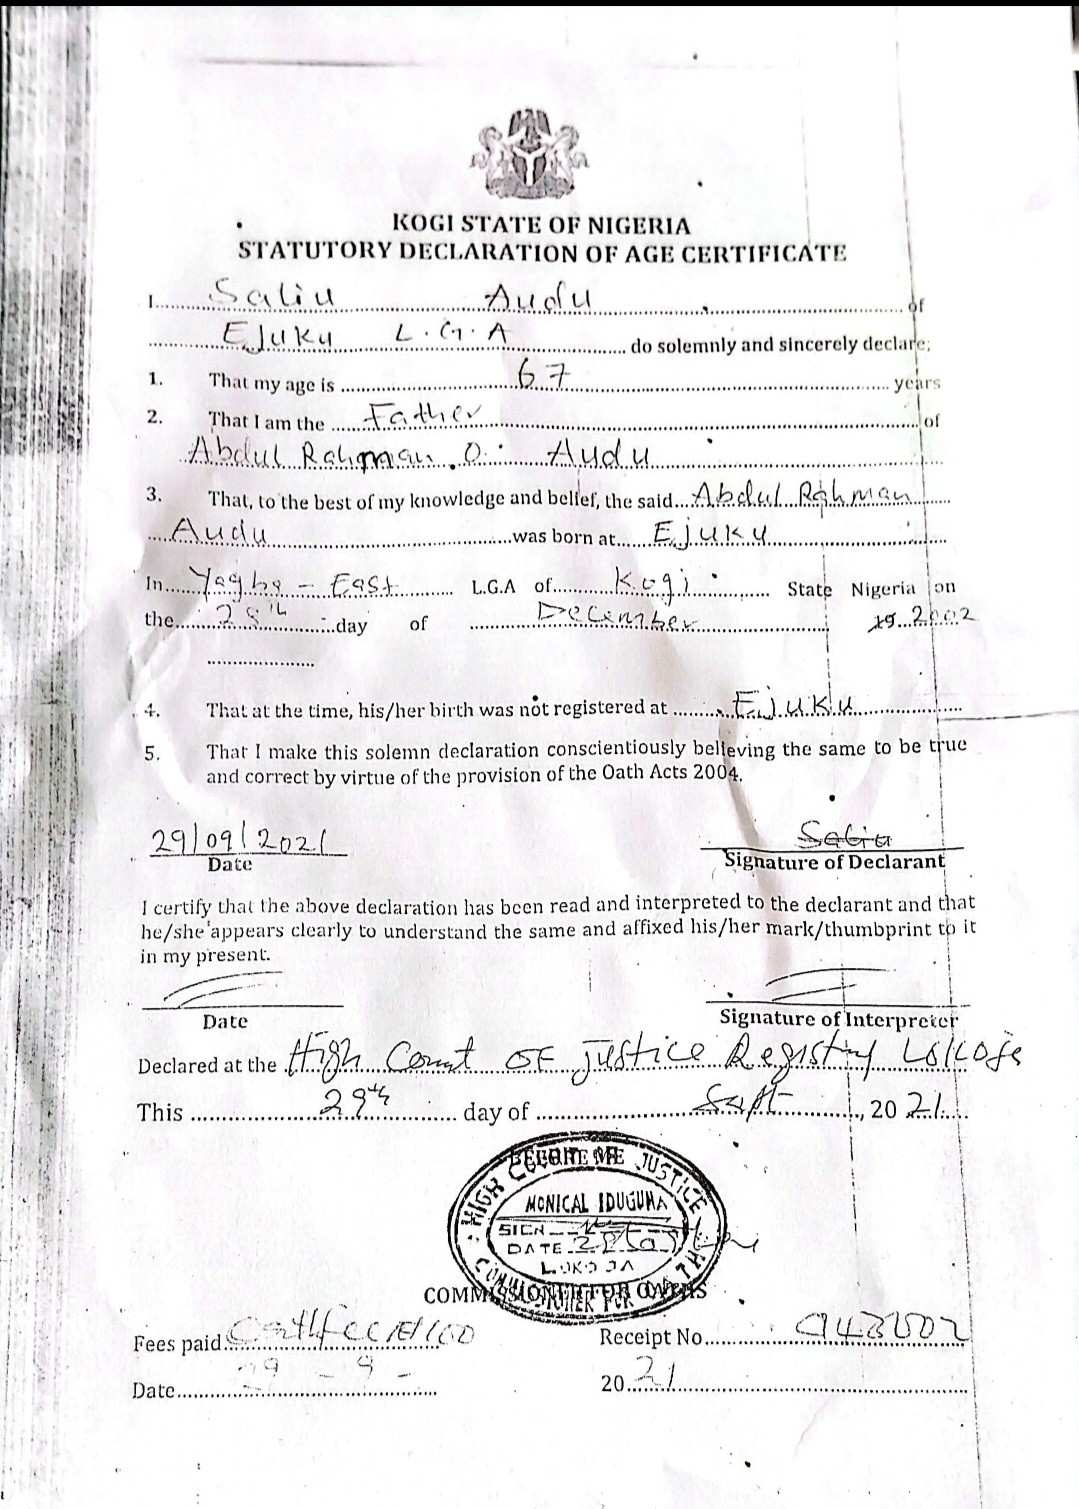 KOGI STATE OF NIGERIA
STATUTORY DECLARATION OF AGE CERTIFICATE
I Saliu Audu of
Ejuku L.G.A do solemnly and sincerely declare;
1. That my age is 67 years
2. That I am the Father of
Abdul Rahman .O. Audu
3. That, to the best of my knowledge and belief, the said Abdul Rahman
Audu was born at Ejuku
In Yagba - East L.G.A of Kogi State Nigeria on
the 28th day of December 19 2002
4. That at the time, his/her birth was not registered at Ejuku
5. That I make this solemn declaration conscientiously believing the same to be true
and correct by virtue of the provision of the Oath Acts 2004.
29/09/2021 Saliu
Date Signature of Declarant
I certify that the above declaration has been read and interpreted to the declarant and that
he/she appears clearly to understand the same and affixed his/her mark/thumbprint to it
in my present.
Date Signature of Interpreter
Declared at the High Court OF Justice Registry Lokoja
This 29th day of Sept, 20 21
BEFORE ME
HIGH COURT OF JUSTICE
MONICAL IDUGUMA
SIGN
DATE
LOKOJA
COMMISSIONER FOR OATHS
Fees paid
Receipt No.
Date 29 - 9 - 20 21